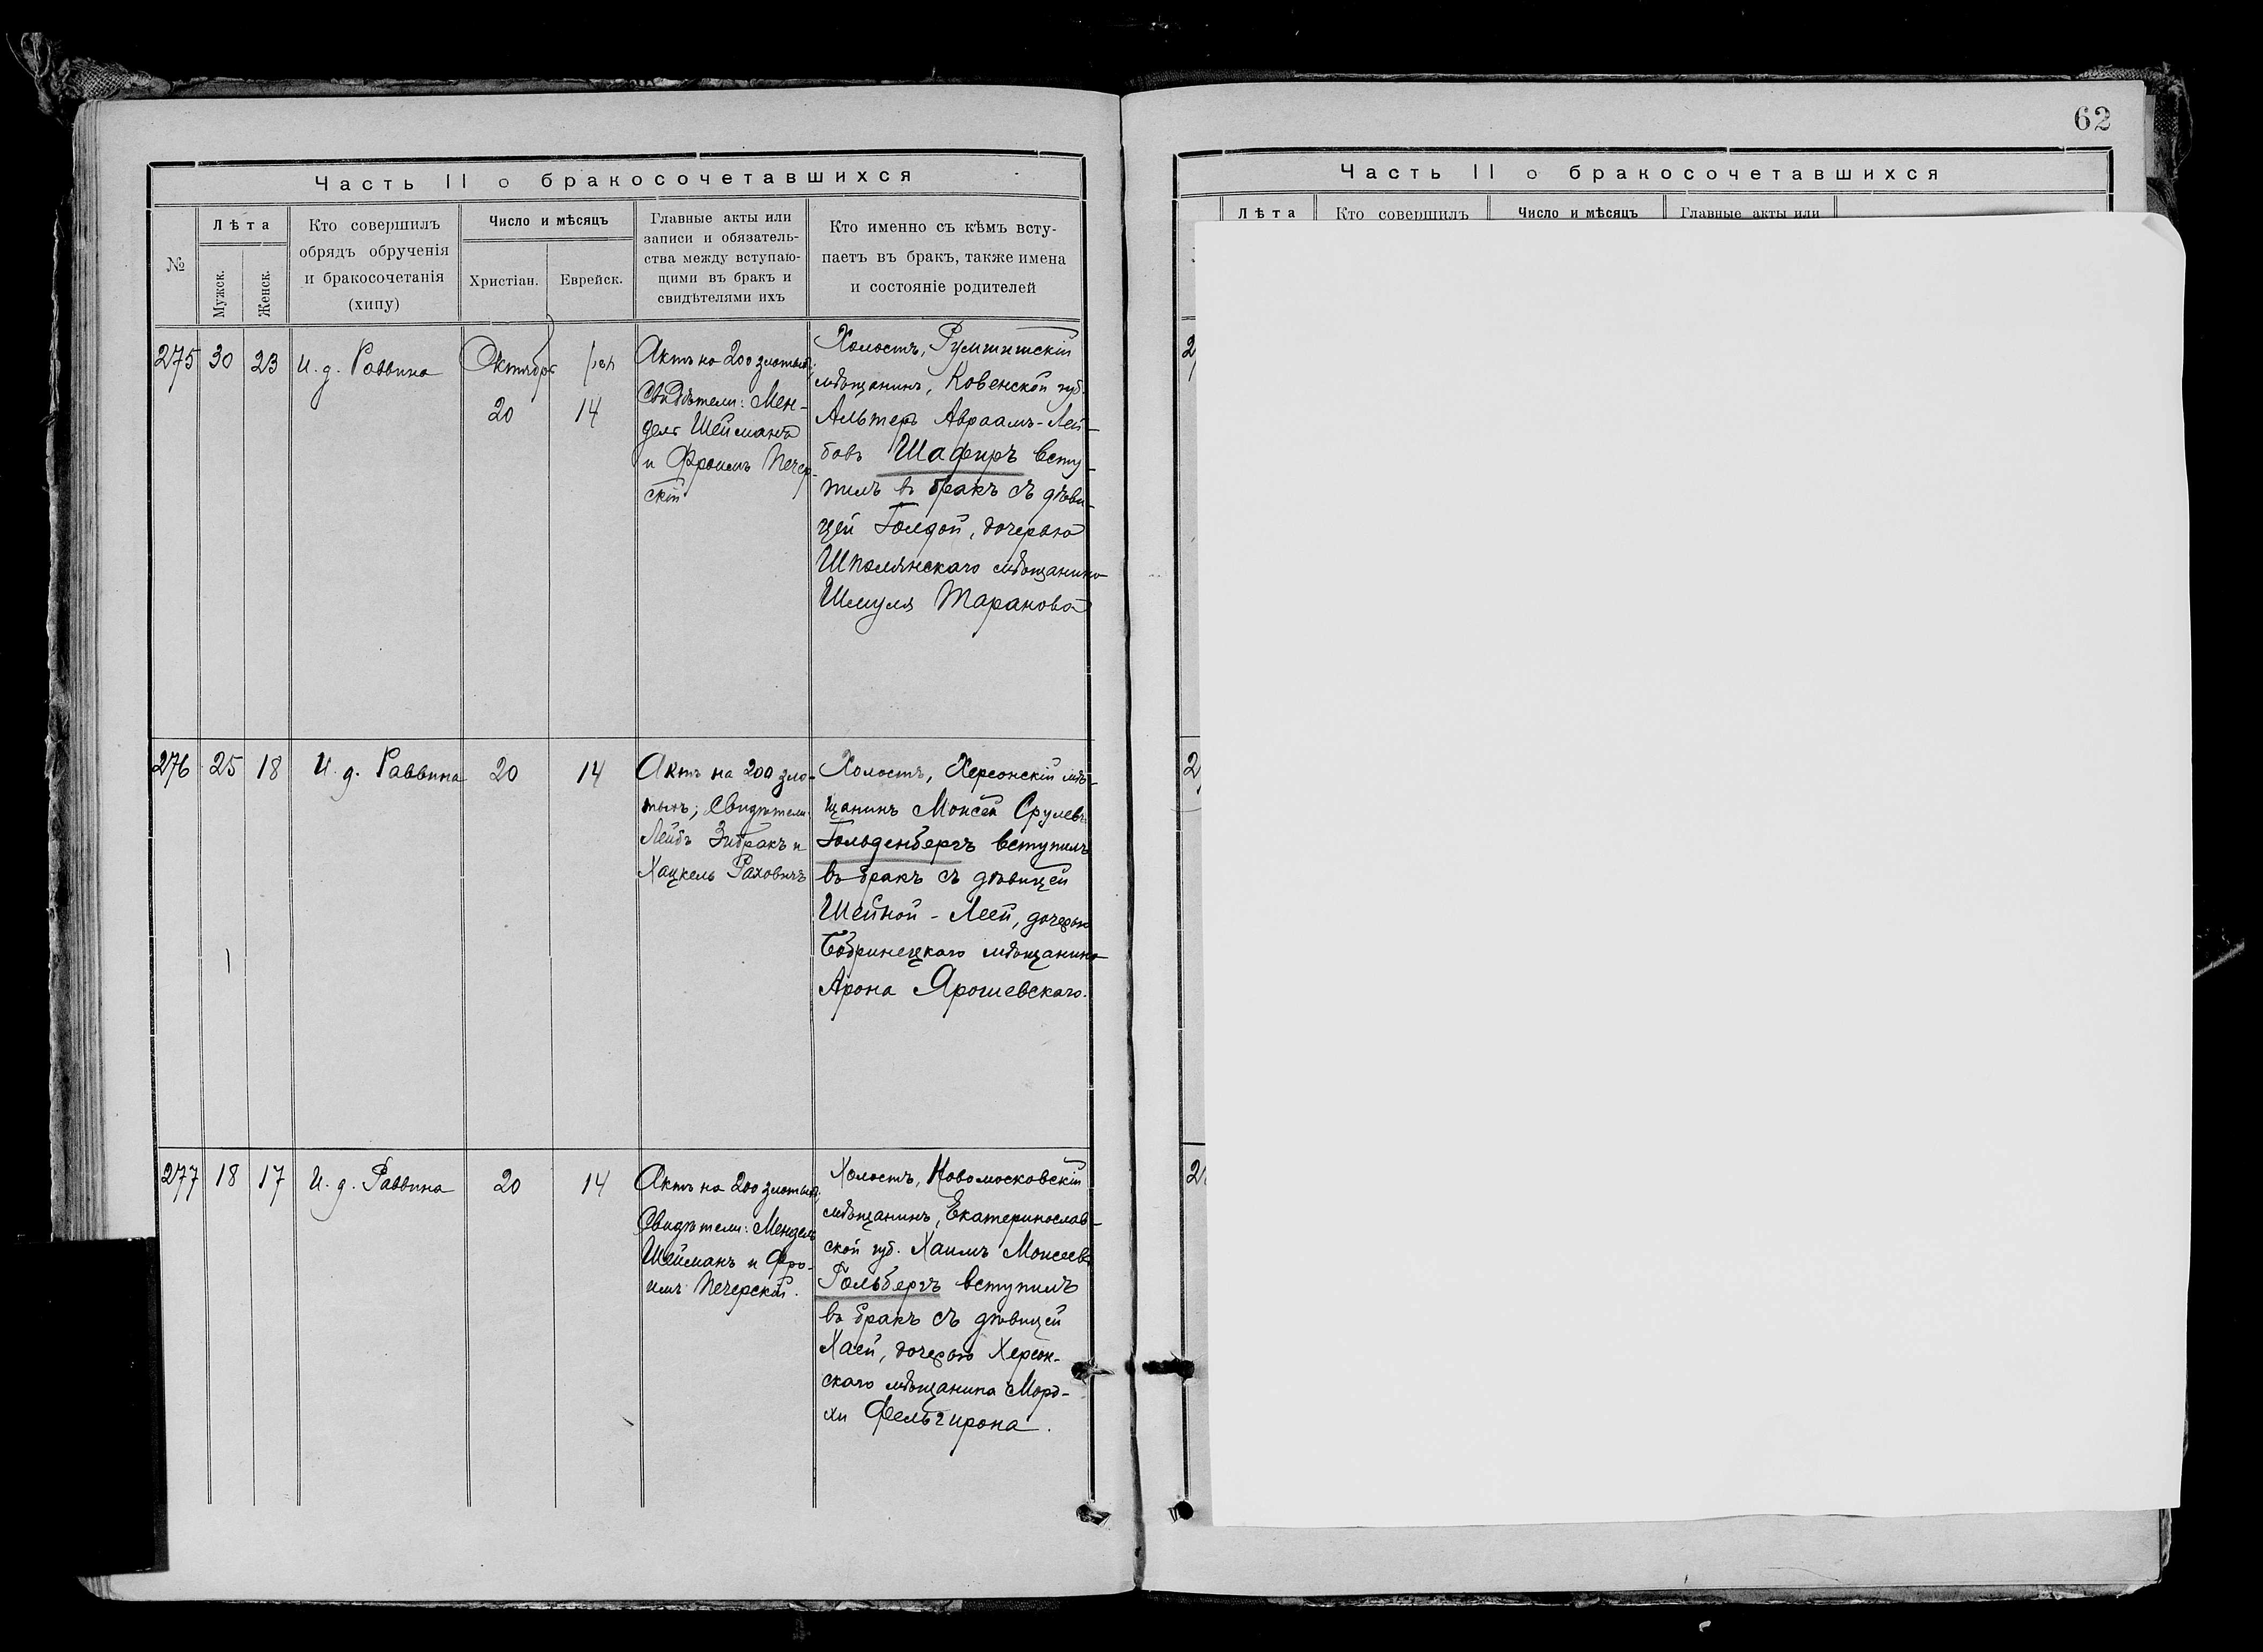 Часть II о бракосочетавшихся
№
Лѣта
Мужск.
Женск.
Кто совершилъ
обрядъ обрученія
и бракосочетанія
(хипу)
Число и мѣсяцъ
Христіан.
Еврейск.
Главные акты или
записи и обязатель-
ства между вступаю-
щими въ бракъ и
свидѣтелями ихъ
Кто именно съ кѣмъ всту-
паетъ въ бракъ, также имена
и состояніе родителей
275
30
23
И. д. Раввина
Октябрь
20
14
Актъ на 200 злотыхъ;
Свидѣтели: Мен-
дель Шейманъ
и Фроимъ Печер-
скій
Холостъ, Румшишскій
мѣщанинъ, Ковенской губ.
Альтеръ Авраамъ-Лей-
бовъ Шафиръ всту-
пилъ въ бракъ съ дѣви-
цей Голдой, дочерью
Шполянскаго мѣщанина
Шмуля Таранова
276
25
18
И. д. Раввина
20
14
Актъ на 200 зло-
тыхъ; Свидѣтели:
Лейбъ Зибракъ и
Хацкель Раховичъ
Холостъ, Херсонскій мѣ-
щанинъ Моисей Срулевъ
Гольденбергъ вступилъ
въ бракъ съ дѣвицей
Шейной-Леей, дочерью
Бобринецкаго мѣщанина
Арона Ярошевскаго.
277
18
17
И. д. Раввина
20
14
Актъ на 200 злотыхъ;
Свидѣтели: Мендель
Шейманъ и Фро-
имъ Печерскій.
Холостъ, Новомосковскій
мѣщанинъ, Екатеринослав-
ской губ. Хаимъ Моисеевъ
Гольбергъ вступилъ
въ бракъ съ дѣвицей
Хаей, дочерью Херсон-
скаго мѣщанина Морд-
хи Фельгирона.
62
Часть II о бракосочетавшихся
Лѣта
Кто совершилъ
Число и мѣсяцъ
Главные акты или